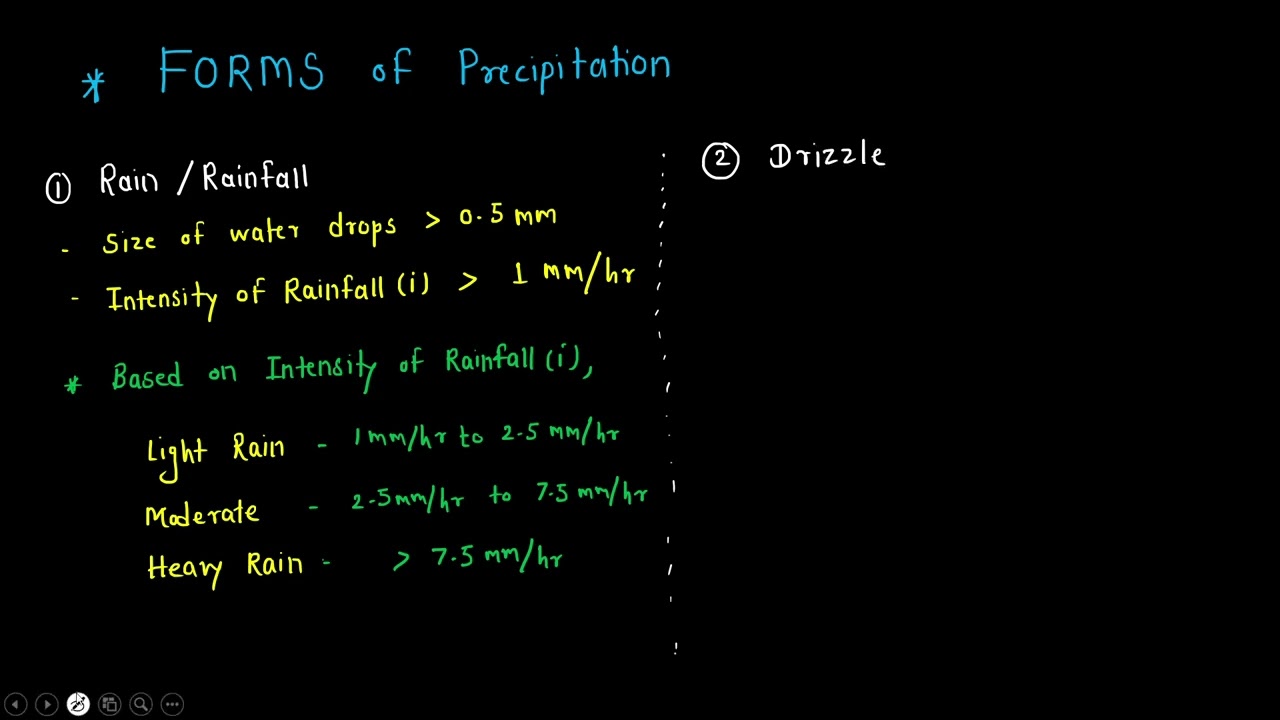 * FORMS of Precipitation
① Rain / Rainfall
- Size of water drops > 0.5 mm
- Intensity of Rainfall (i) > 1 mm/hr
* Based on Intensity of Rainfall (i),
Light Rain - 1 mm/hr to 2.5 mm/hr
Moderate - 2.5 mm/hr to 7.5 mm/hr
Heavy Rain - > 7.5 mm/hr
② Drizzle